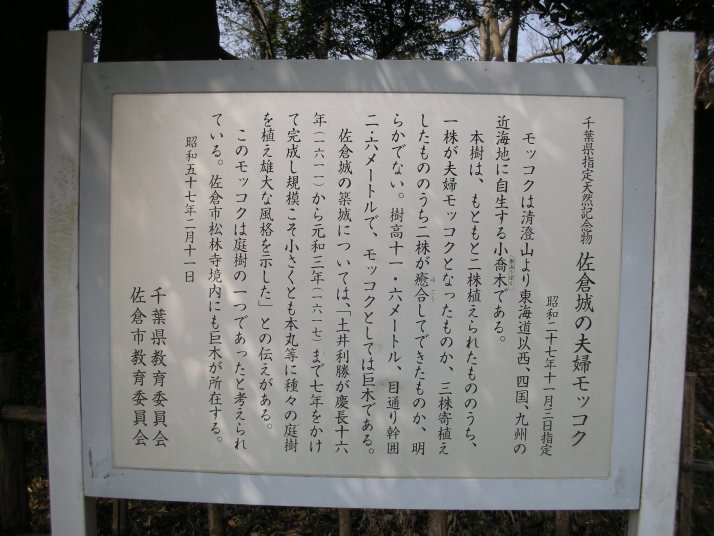 千葉県指定天然記念物 佐倉城の夫婦モッコク
昭和二十七年十一月三日指定
モッコクは清澄山より東海道以西、四国、九州の
近海地に自生する小喬木である。
本樹は、もともと二株植えられたもののうち、
一株が夫婦モッコクとなったものか、三株寄植え
したもののうち二株が癒合してできたものか、明
らかでない。樹高十一・六メートル、目通り幹囲
二・六メートルで、モッコクとしては巨木である。
佐倉城の築城については、「土井利勝が慶長十六
年(一六一一)から元和三年(一六一七)まで七年をかけ
て完成し規模こそ小さくとも本丸等に種々の庭樹
を植え雄大な風格を示した」との伝えがある。
このモッコクは庭樹の一つであったと考えられ
ている。佐倉市松林寺境内にも巨木が所在する。
昭和五十七年二月十一日
千葉県教育委員会
佐倉市教育委員会